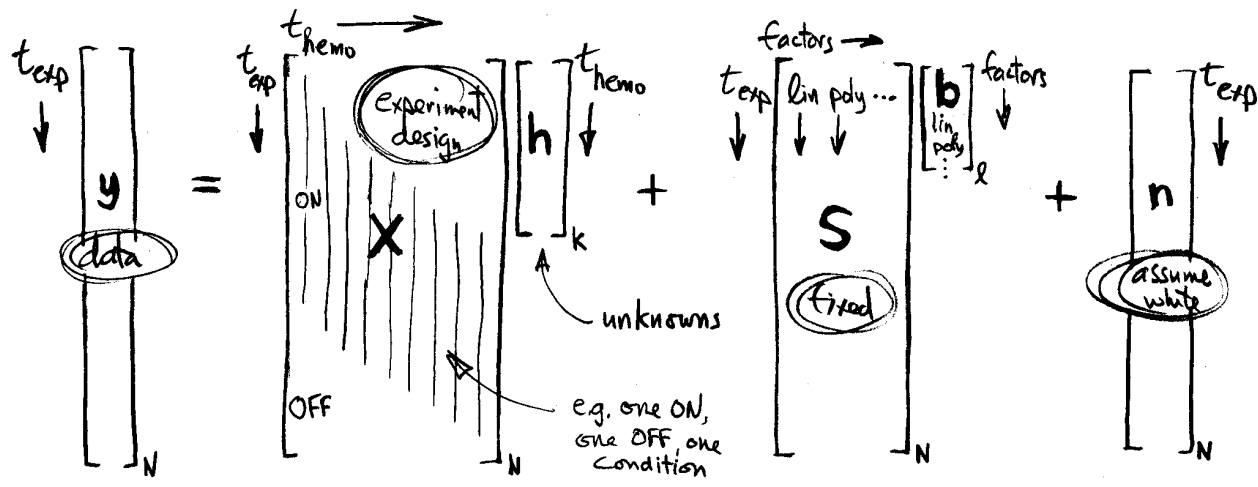 t_exp
y
data
N
=
t_hemo
t_exp
experiment
design
ON
X
OFF
N
h
k
t_hemo
unknowns
e.g. one ON,
one OFF, one
condition
+
factors
t_exp
lin poly ...
S
fixed
N
b
lin
poly
⋮
l
factors
+
n
assume
white
N
t_exp